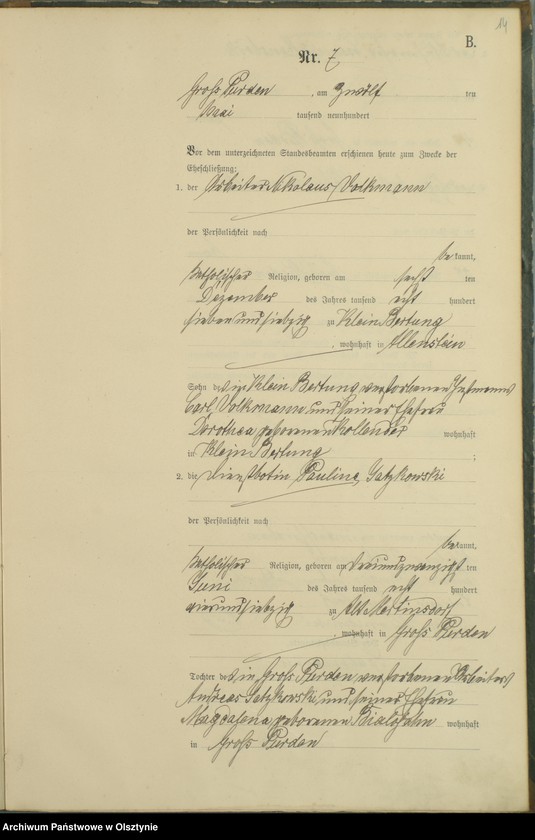 14
B.
Nr. 7
Groß Purden, am zwölf ten
Mai tausend neunhundert
Vor dem unterzeichneten Standesbeamten erschienen heute zum Zwecke der
Eheschließung:
1. der Arbeiter Nikolaus Volkmann
der Persönlichkeit nach
be kannt,
katholischer Religion, geboren am sechs ten
Dezember des Jahres tausend acht hundert
siebenundsiebzig zu Klein Bertung
, wohnhaft in Allenstein
Sohn des in Klein Bertung verstorbenen
Carl Volkmann und seiner Ehefrau
Dorothea geborenen Kollender wohnhaft
in Klein Bertung ;
2. die Dienstbotin Pauline
der Persönlichkeit nach
be kannt,
katholischer Religion, geboren am dreiundzwanzigst ten
Juni des Jahres tausend acht hundert
vierundsiebzig zu Alt Martinsdorf
, wohnhaft in Groß Purden
Tochter des in Groß Purden verstorbenen Arbeiters
Andreas und seiner Ehefrau
Magdalena geborenen wohnhaft
in Groß Purden
Archiwum Państwowe w Olsztynie